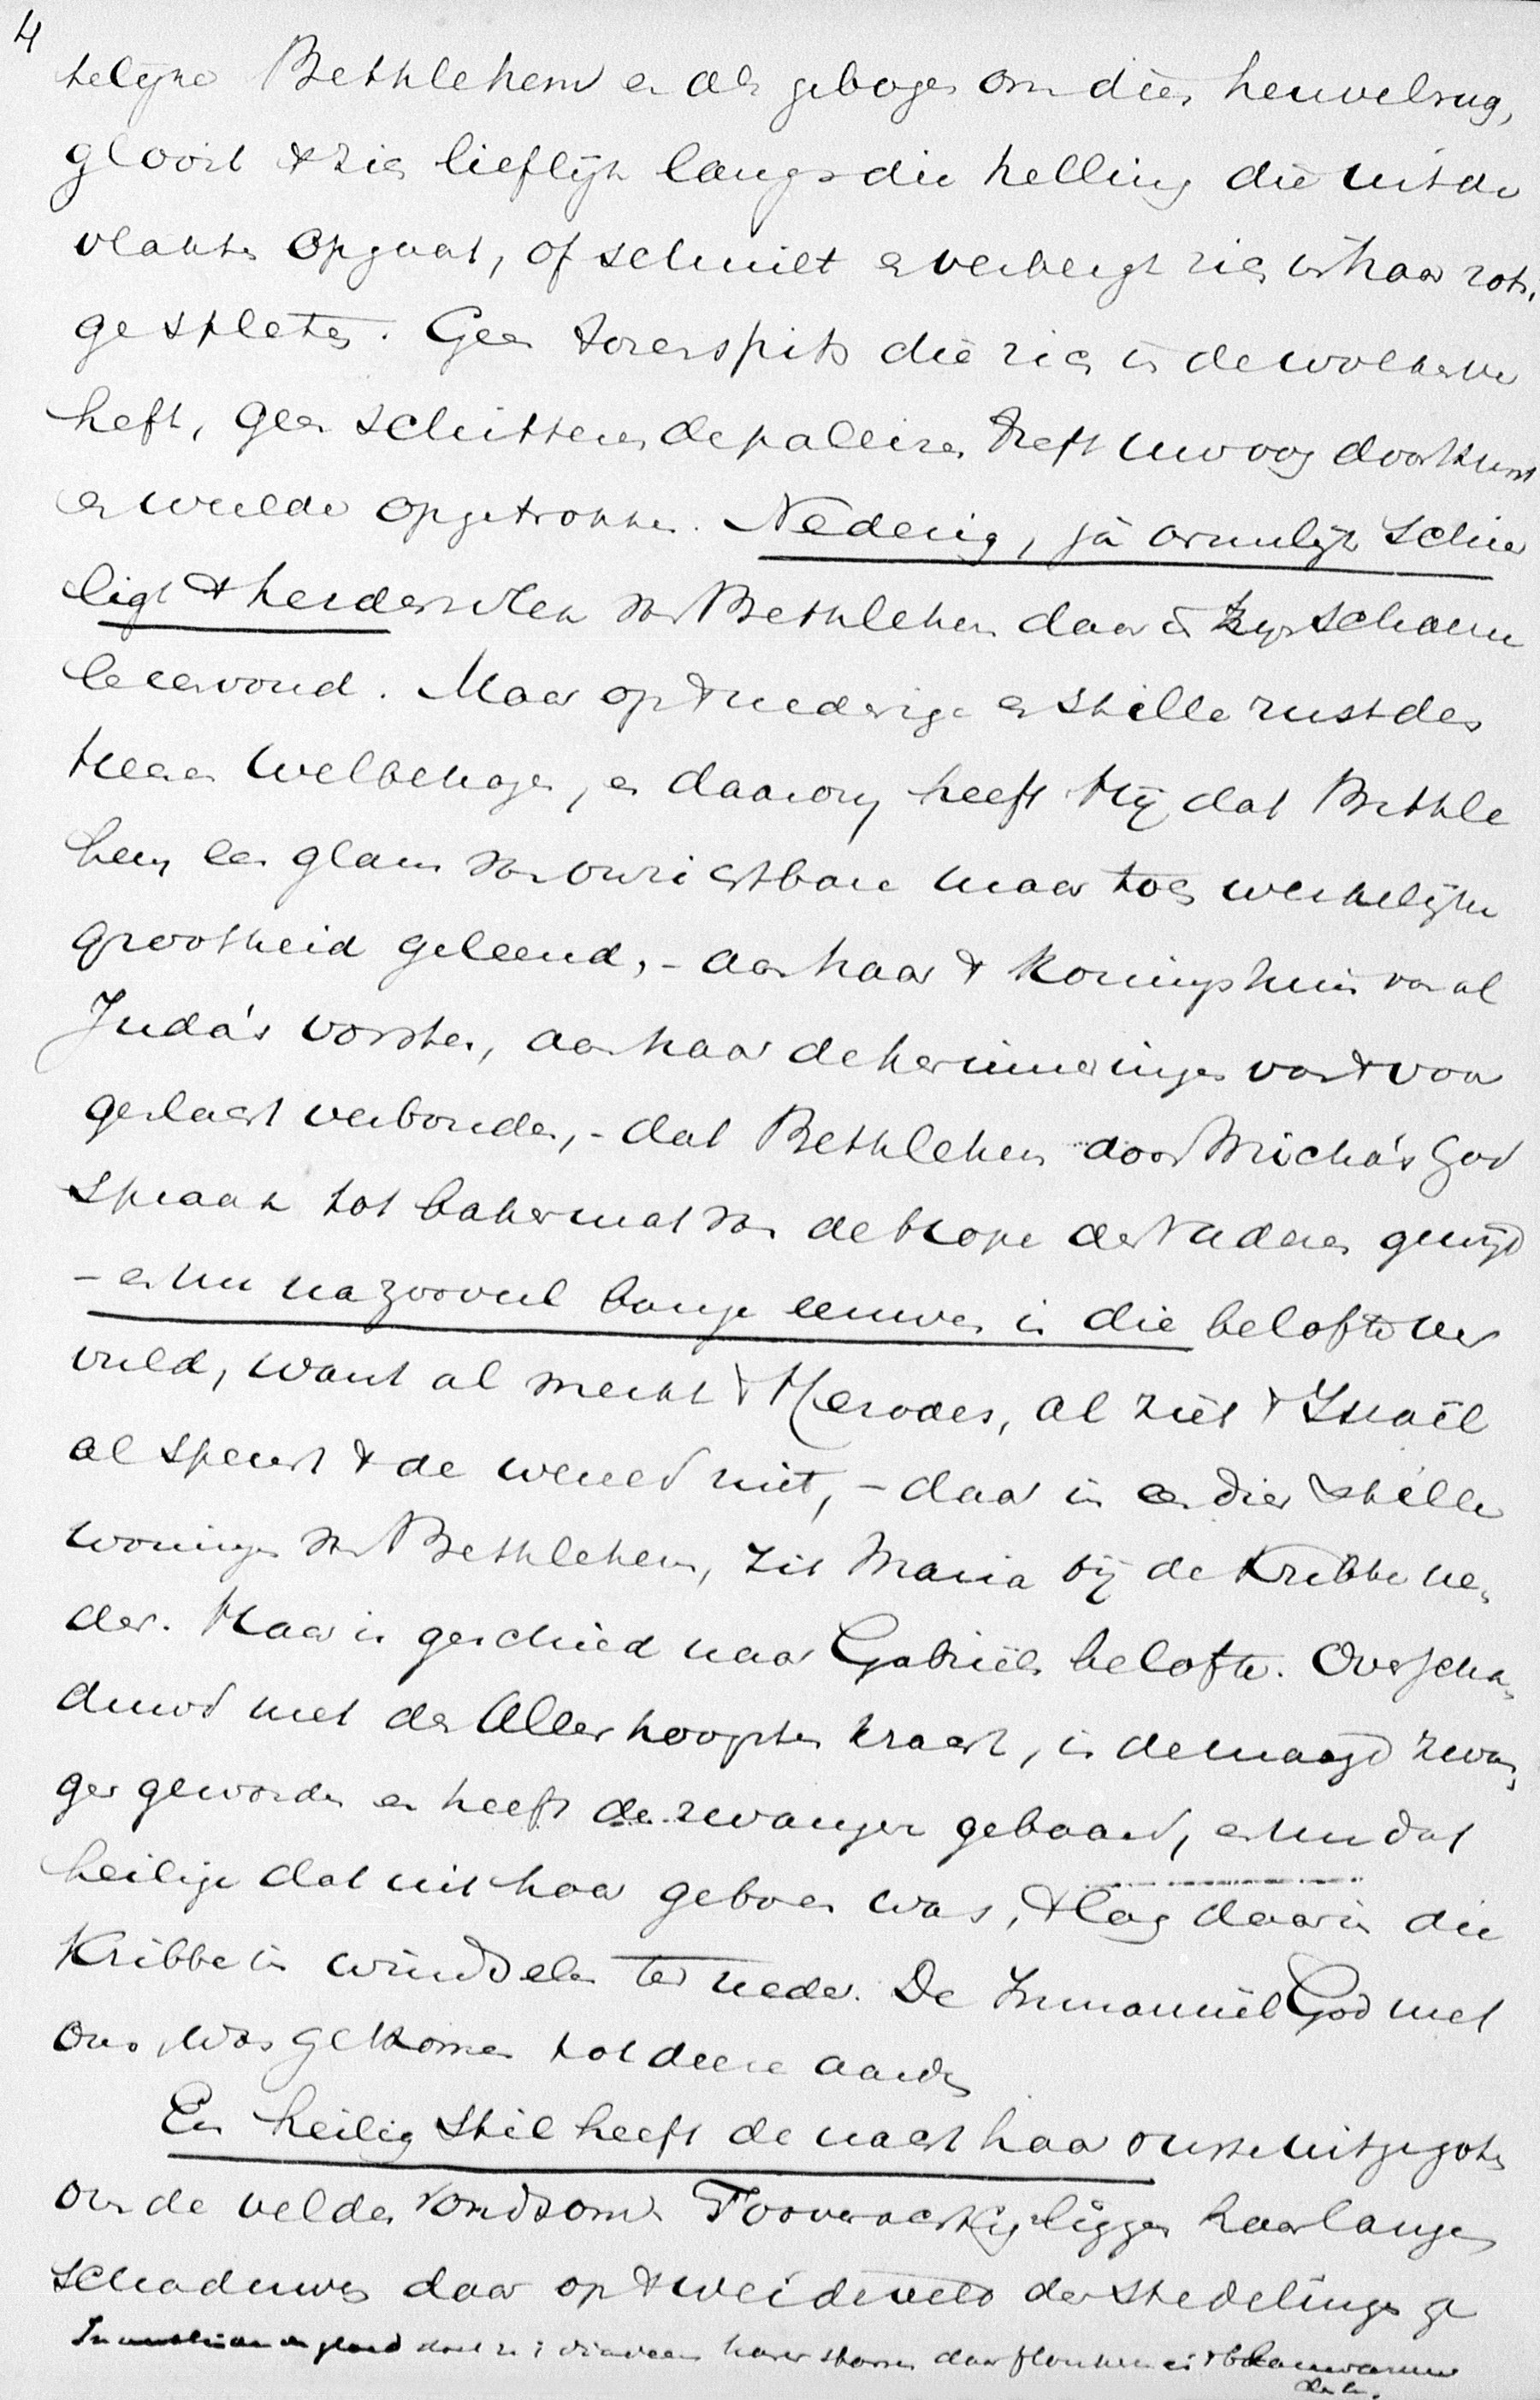 4
telijke Bethlehem en als gebogen om dien heuvelrug,
gloort 't zich lieflijk langs die helling die uit de
vlakte opgaat, of schuilt en verbergt zich in haar rots,
gespleten. Geen torenspits die zich in de wolken
heft, geen schitterende paleizen treft uw oog door kunst
en weelde opgetrokken. Nederig, ja armelijk schier
ligt 't herdersvlek van Bethlehem daar in zijn schaam
le eenvoud. Maar op 't nederige en stille rust des
Heeren welbehagen, en daarom heeft Hij dat Bethle
hem een glans van onzichtbare maar toch werkelijke
grootheid geleend, - aan haar 't Koningshuis van al
Juda's vorsten, aan haar de herinneringen van 't voor
geslacht verbonden, - dat Bethlehem door Micha's God
spraak tot bakermat van de hope der vaderen gewijd
- en nu na zooveel bange eeuwen is die belofte ver
vuld, want al merkt 't Herodes, al ziet 't Israël
al speurt 't de wereld niet, - daar in een dier stille
woningen van Bethlehem, zit Maria bij de Kribbe ne,
der. Haar is geschied naar Gabriëls belofte. Overscha,
duwd met des Allerhoogsten kracht, is de maagd zwan,
ger geworden en heeft de zwangere gebaard, en nu dat
heilige dat uit haar geboren was, 't lag daar in die
Kribbe in windselen ter neder. De Immanuël God met
ons, was gekomen tot deze aarde
En heilig stil heeft de nacht haar ruste uitgegoten
over de velden rondsom. Tooverachtig liggen haar lange
schaduwen daar op 't weideveld der stedelingen ge
haar sterren daar flonkeren in 't